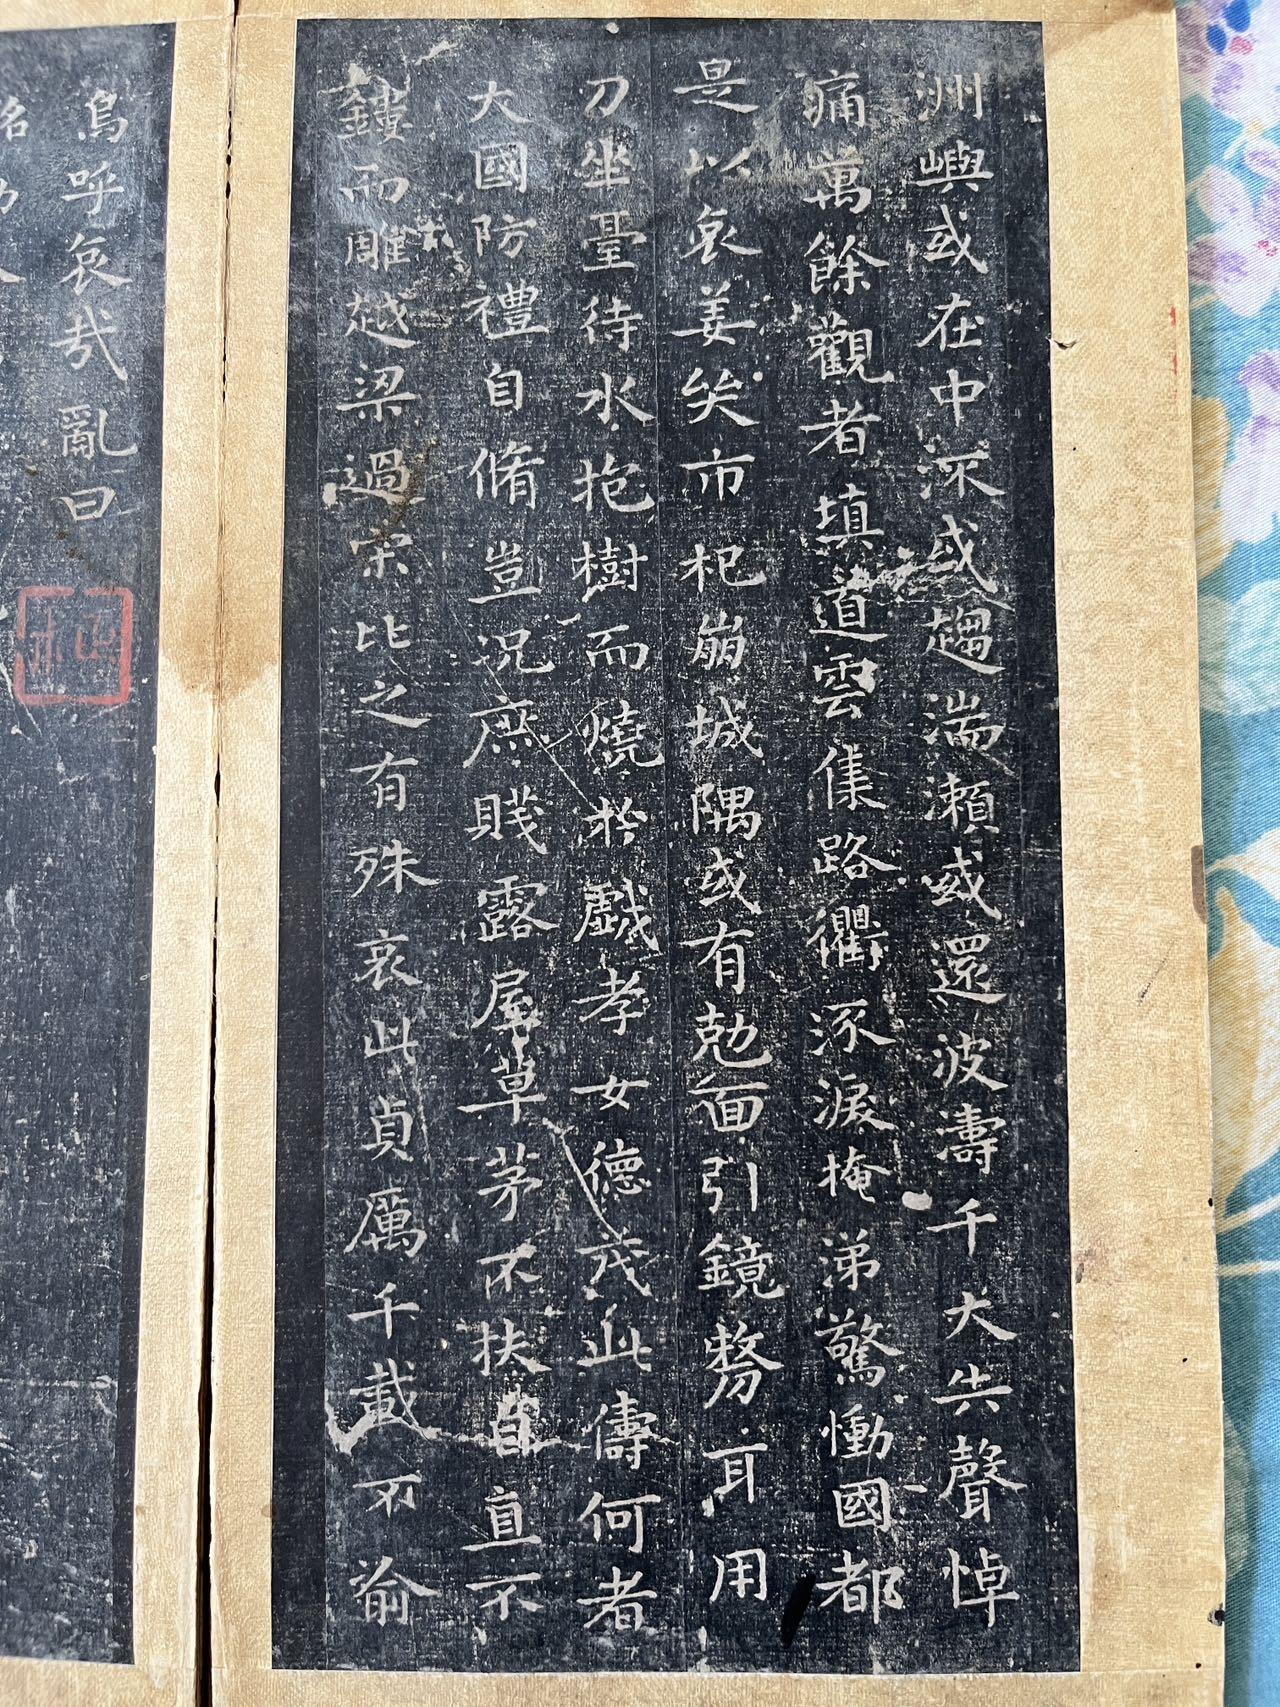 洲嶼或在中流或趨湍瀨或還波濤千夫失聲悼
痛萬餘觀者填道雲集路衢流淚掩涕驚慟國都
是以哀姜哭市杞崩城隅或有剋面引鏡剺耳用
刀坐臺待水抱樹而燒於戲孝女德茂此儔何者
大國防禮自脩豈況庶賤露屋草茅不扶自直不
鏤而雕越梁過宋比之有殊哀此貞厲千載不俞
烏呼哀哉亂曰